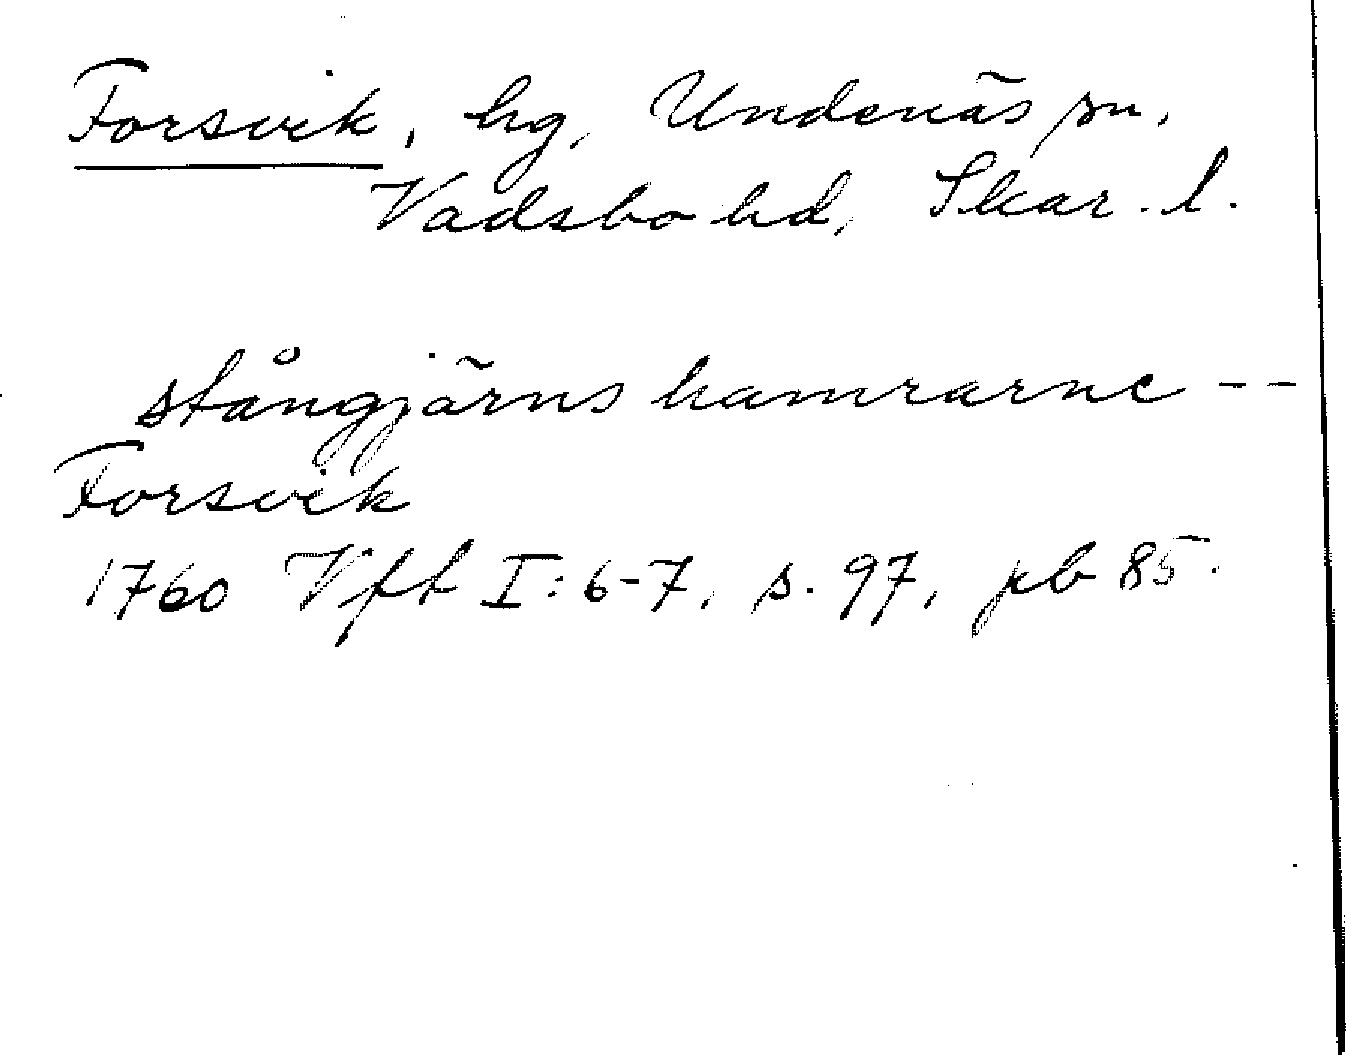 Forsvik, hg, Undenäs sn,
Vadsbo hd, Skar. l.
stångjärnshamrarne --
Forsvik
1760 Vft I:6-7, s. 97, pb 85.